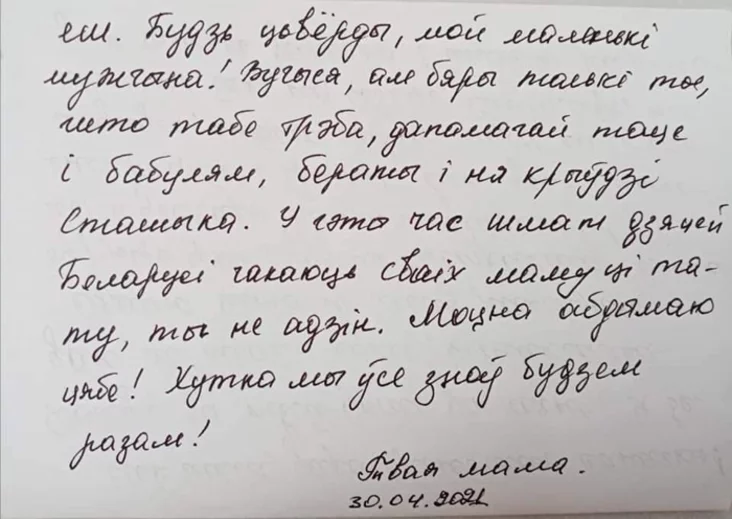 еш. Будзь цьвёрды, мой маленькі
мужчына! Вучыся, але бяры толькі тое,
што табе трэба, дапамагай таце
і бабулям, беражы і не крыўдзі
Сташыка. У гэты час шмат дзяцей
Беларусі чакаюць сваіх маму ці та-
ту, ты не адзін. Моцна абдымаю
цябе! Хутка мы ўсе зноў будзем
разам!
Твая мама.
30.04.2021